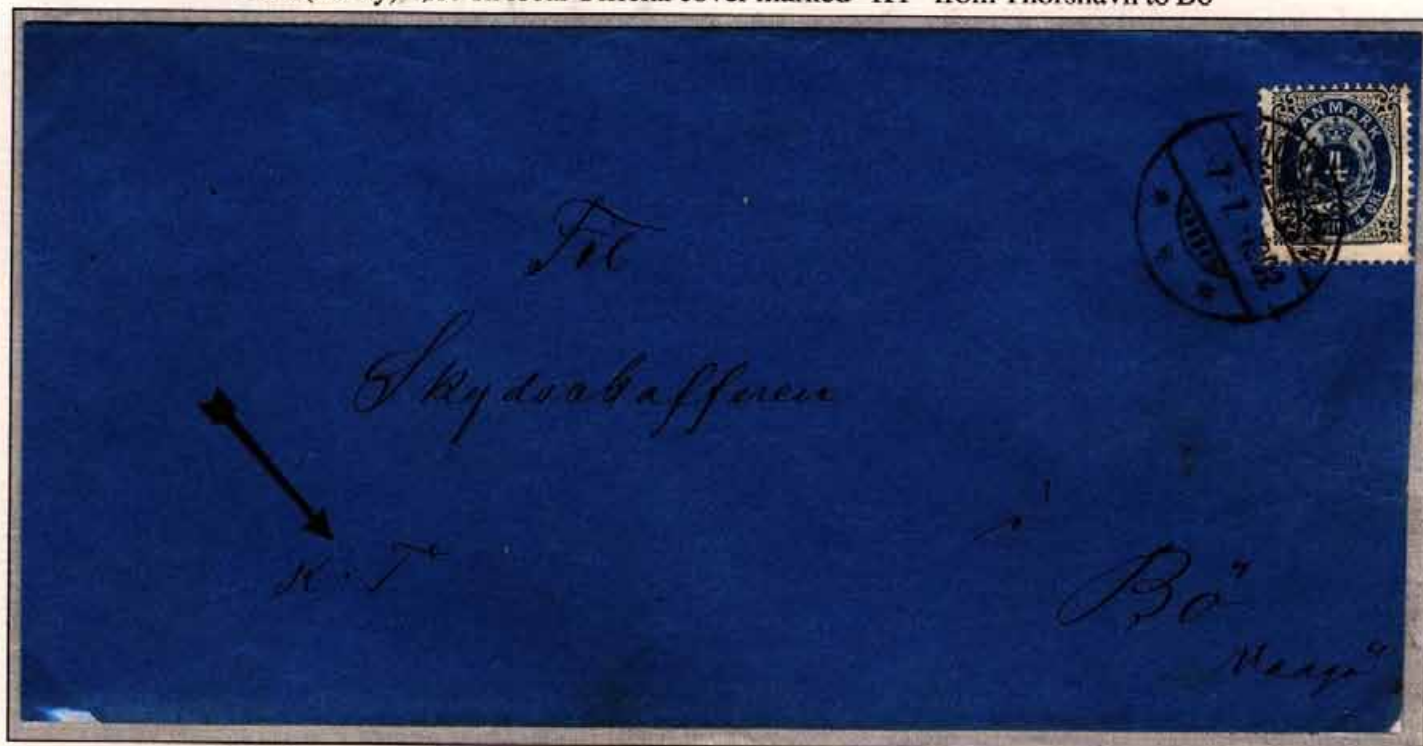 Official cover marked "KT" from Thorshavn to Bö
DANMARK
4
ØRE
Til
Skydsskafferen
i
K. T.
Bö
Vaagö